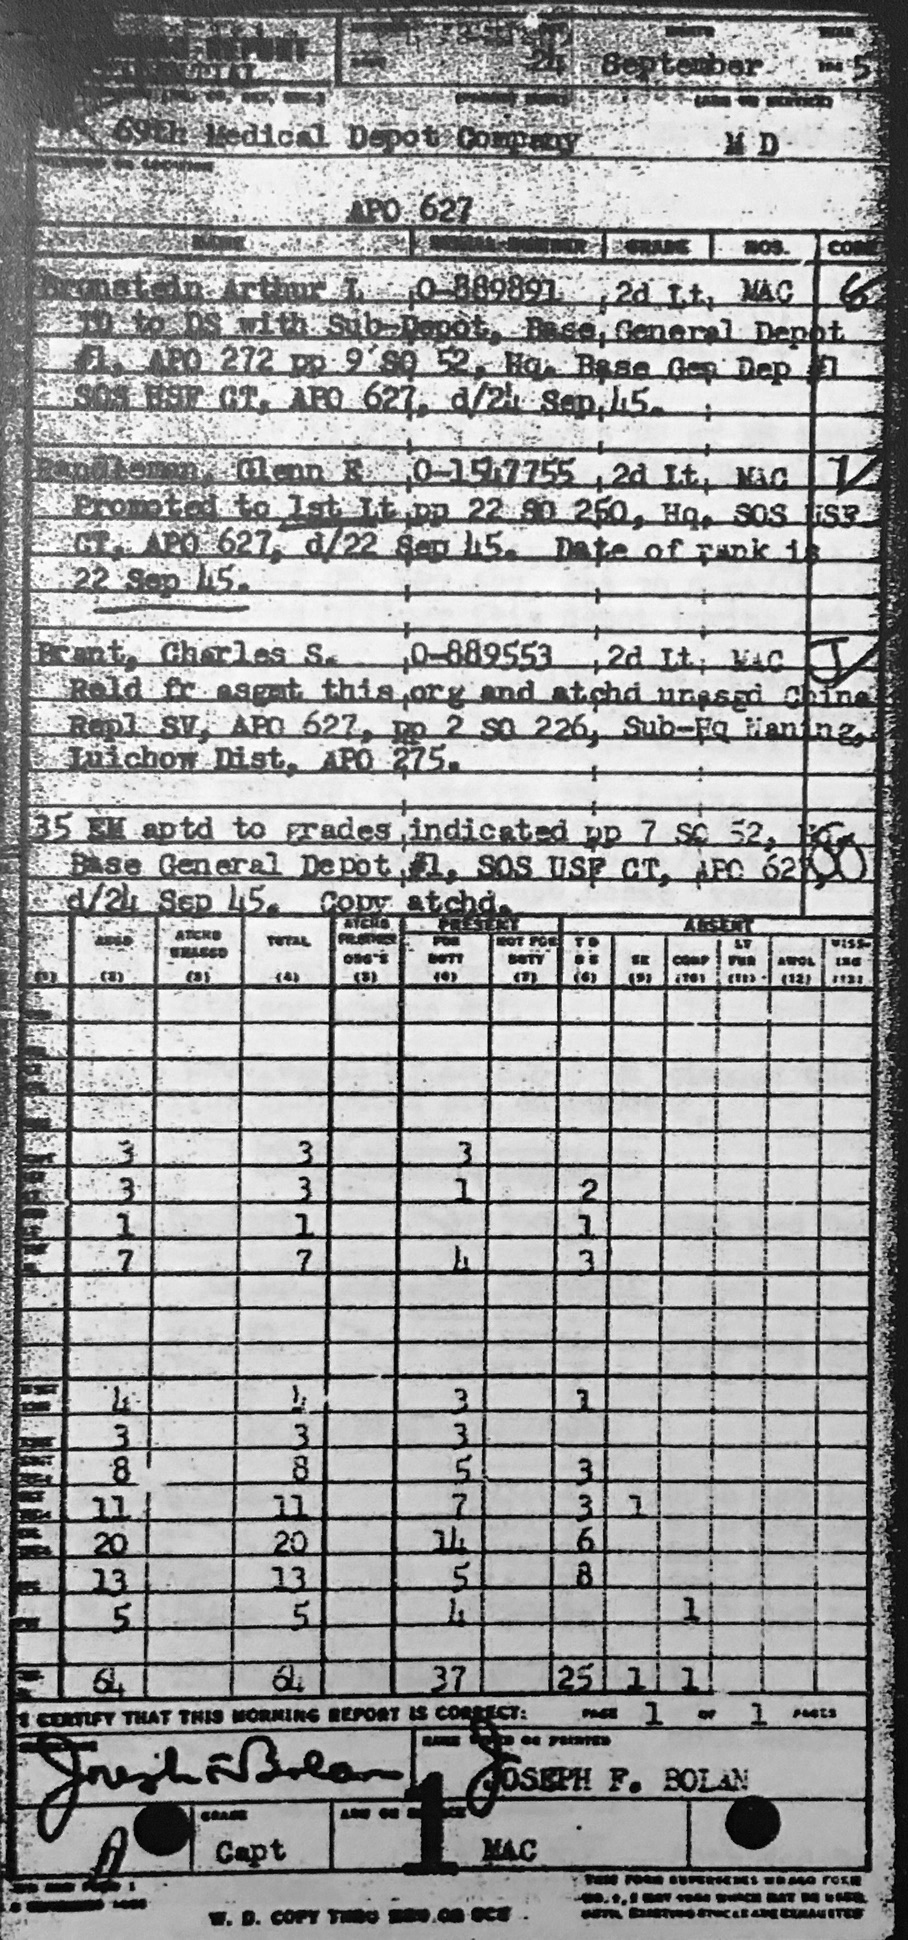 REPORT
24 September 5
69th Medical Depot Company M D
APO 627
NAME SERIAL NUMBER GRADE MOS. CODE
Bronstein Arthur I. O-889891 2d Lt. MAC
TD to DS with Sub-Depot, Base General Depot
#1, APO 272 pp 9 SO 52, Hq. Base Gen Dep #1
SOS USF CT, APO 627, d/24 Sep 45.
Glenn E O-1547755 2d Lt. MAC
Promoted to 1st Lt pp 22 SO 250, Hq. SOS USF
CT, APO 627, d/22 Sep 45. Date of rank is
22 Sep 45.
Brant, Charles S. O-889553 2d Lt. MAC J
Reld fr asgmt this org and atchd unasgd China
Repl SV, APO 627, pp 2 SO 226, Sub-Hq
Luichow Dist, APO 275.
35 EM aptd to grades indicated pp 7 SO 52, Hq.
Base General Depot #1, SOS USF CT, APO 627,
d/24 Sep 45. Copy atchd.
PRESENT ABSENT
ASGD ATCHD UNASGD TOTAL ATCHD FR OTHER ORG'S FOR DUTY NOT FOR DUTY T D D S SK CONF LV FUR AWOL MISSING
(1) (2) (3) (4) (5) (6) (7) (8) (9) (10) (11) (12) (13)
3 3 3
3 3 1 2
1 1 1
7 7 4 3
4 4 3 1
3 3 3
8 8 5 3
11 11 7 3 1
20 20 14 6
13 13 5 8
5 5 4 1
64 64 37 25 1 1
I CERTIFY THAT THIS MORNING REPORT IS CORRECT: PAGE 1 OF 1 PAGES
Joseph F Bolan JOSEPH F. BOLAN
GRADE
Capt 1 MAC
THIS FORM SUPERSEDES WD AGO FORM
NO. 1, 5 MAY 1944 WHICH MAY BE USED
UNTIL EXISTING STOCKS ARE EXHAUSTED
W. D. COPY THRU MRU OR SCS